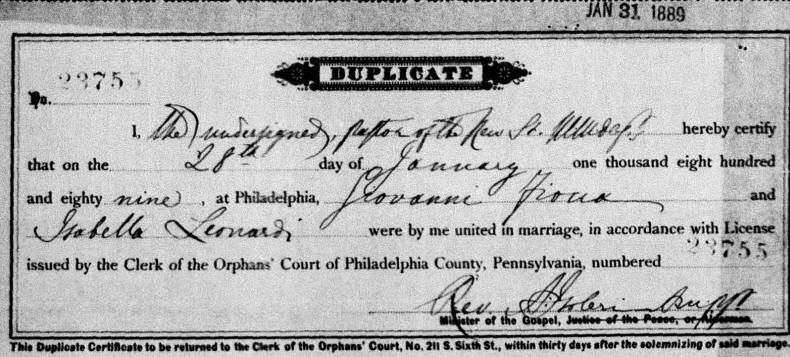 JAN 31 1889
DUPLICATE
No. 23755
I, the undersigned, pastor of the New St. hereby certify
that on the 28th day of January one thousand eight hundred
and eighty nine, at Philadelphia, Giovanni and
Isabella Leonardi were by me united in marriage, in accordance with License
issued by the Clerk of the Orphans' Court of Philadelphia County, Pennsylvania, numbered 23755
Rev.
Minister of the Gospel, Justice of the Peace, or Alderman.
This Duplicate Certificate to be returned to the Clerk of the Orphans' Court, No. 211 S. Sixth St., within thirty days after the solemnizing of said marriage.